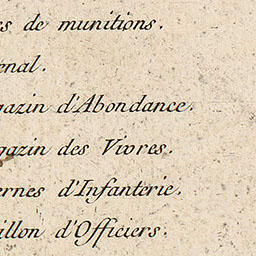 es de munitions.
enal.
gazin d'Abondance.
gazin des Vivres.
ernes d'Infanterie.
illon d'Officiers.